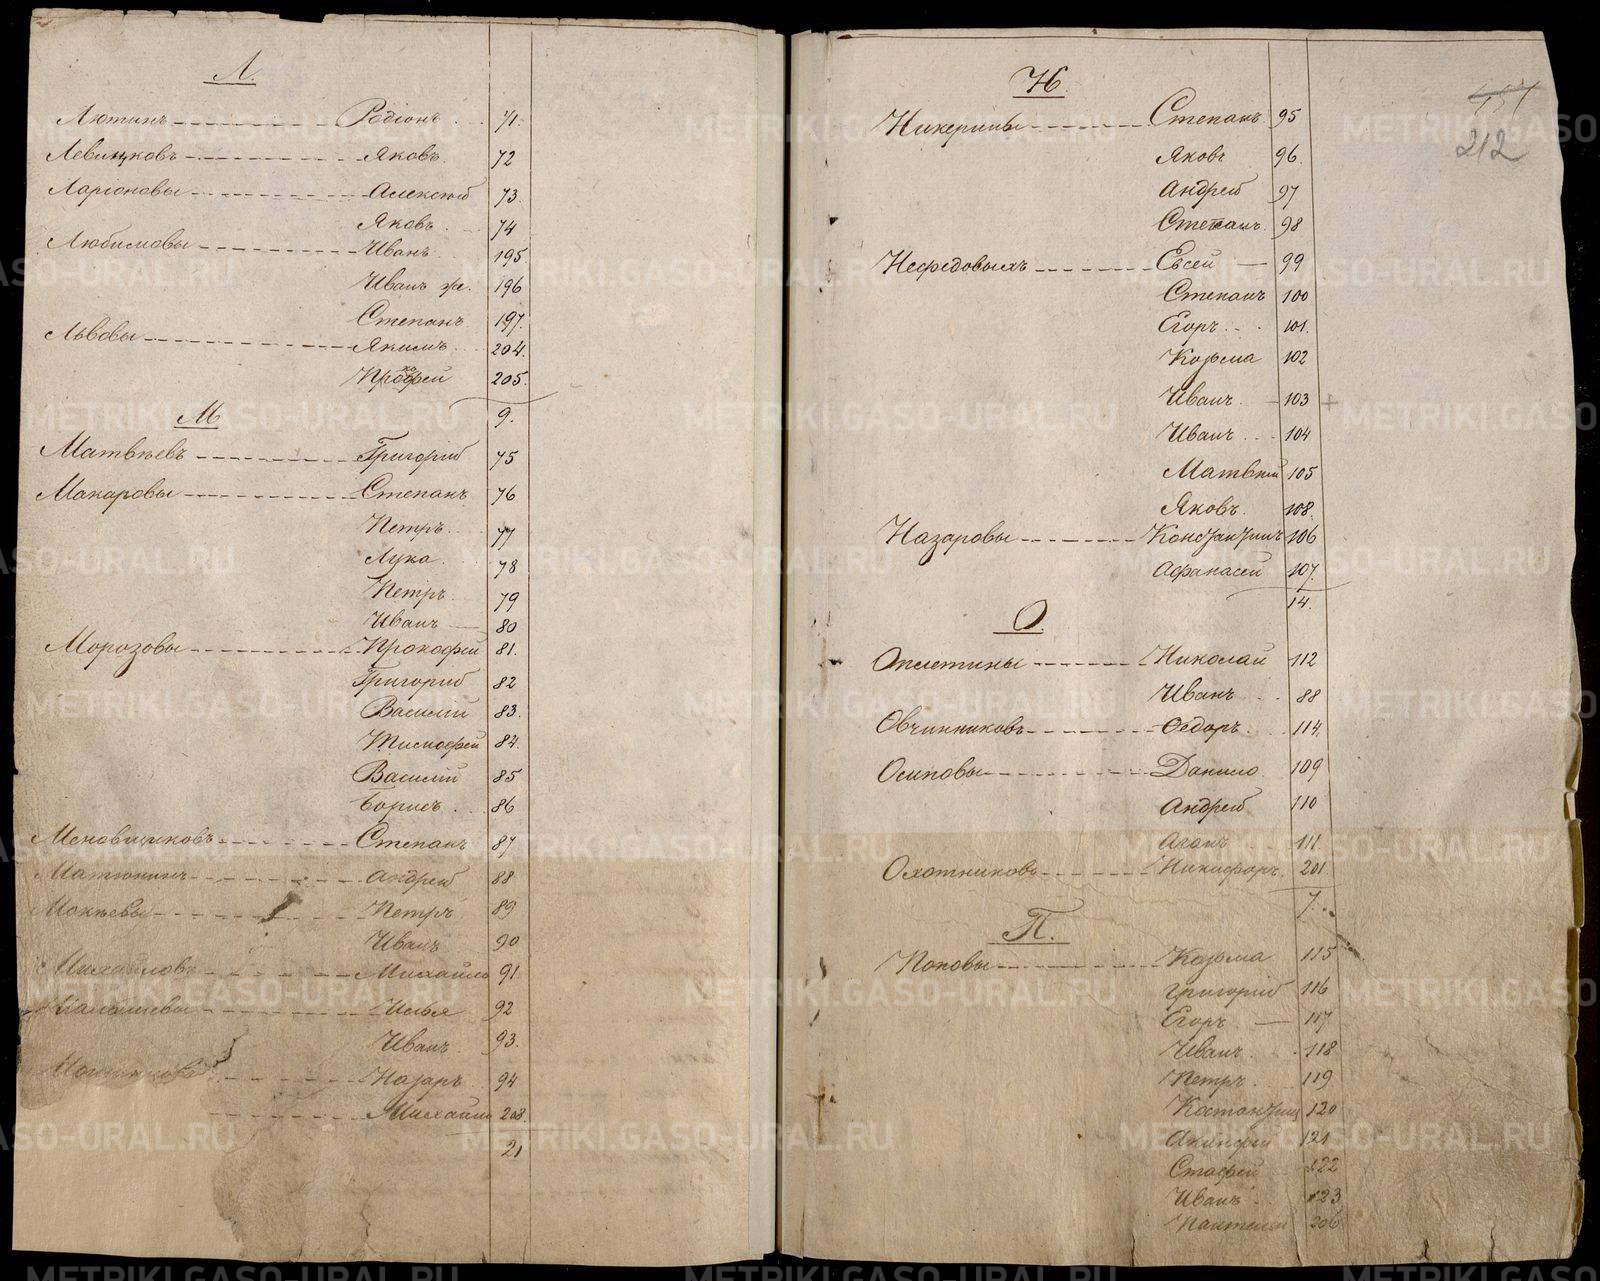 Л.
Лютинъ Родіонъ 71.
Левинковъ Яковъ 72
Ларіоновы Алексѣй 73.
Яковъ 74
Любимовы Иванъ 195
Иванъ же. 196
Степанъ 197.
Львовы Якимъ 204.
205.
9.
М
Матвѣевъ Григорій 75
Макаровы Степанъ 76
Петръ 77
Лука 78
Петръ 79
Иванъ 80
Морозовы Прокофей 81.
Григорій 82
Василій 83.
Тимофей 84.
Василій 85
Борисъ 86
Меновщиковъ Степанъ 87
Матюнинъ Андрей 88
Мокѣевы Петръ 89
Иванъ 90
Михайловъ Михайло 91
Илья 92
Иванъ 93.
Назаръ 94
Михайло 208.
21
Н.
454
212
Никерины Степанъ 95
Яковъ 96.
Андрей 97
Степанъ 98
Нефедовыхъ Евсей 99
Степанъ 100
Егоръ 101.
Козьма 102
Иванъ 103
Иванъ 104
Матвѣй 105
Яковъ 108.
Назаровы Константинъ 106
Афанасей 107.
14.
О.
Оплетины Николай 112
Иванъ 88
Овчинниковъ Ѳедоръ 114.
Осиповы Данило 109
Андрей 110
Агапъ 111.
Охотниковъ Никифоръ 201
7.
П.
Поповы Козьма 115
Григорій 116
Егоръ 117
Иванъ 118
Петръ 119
120
121
122
Иванъ 123
206
METRIKI.GASO-URAL.RU